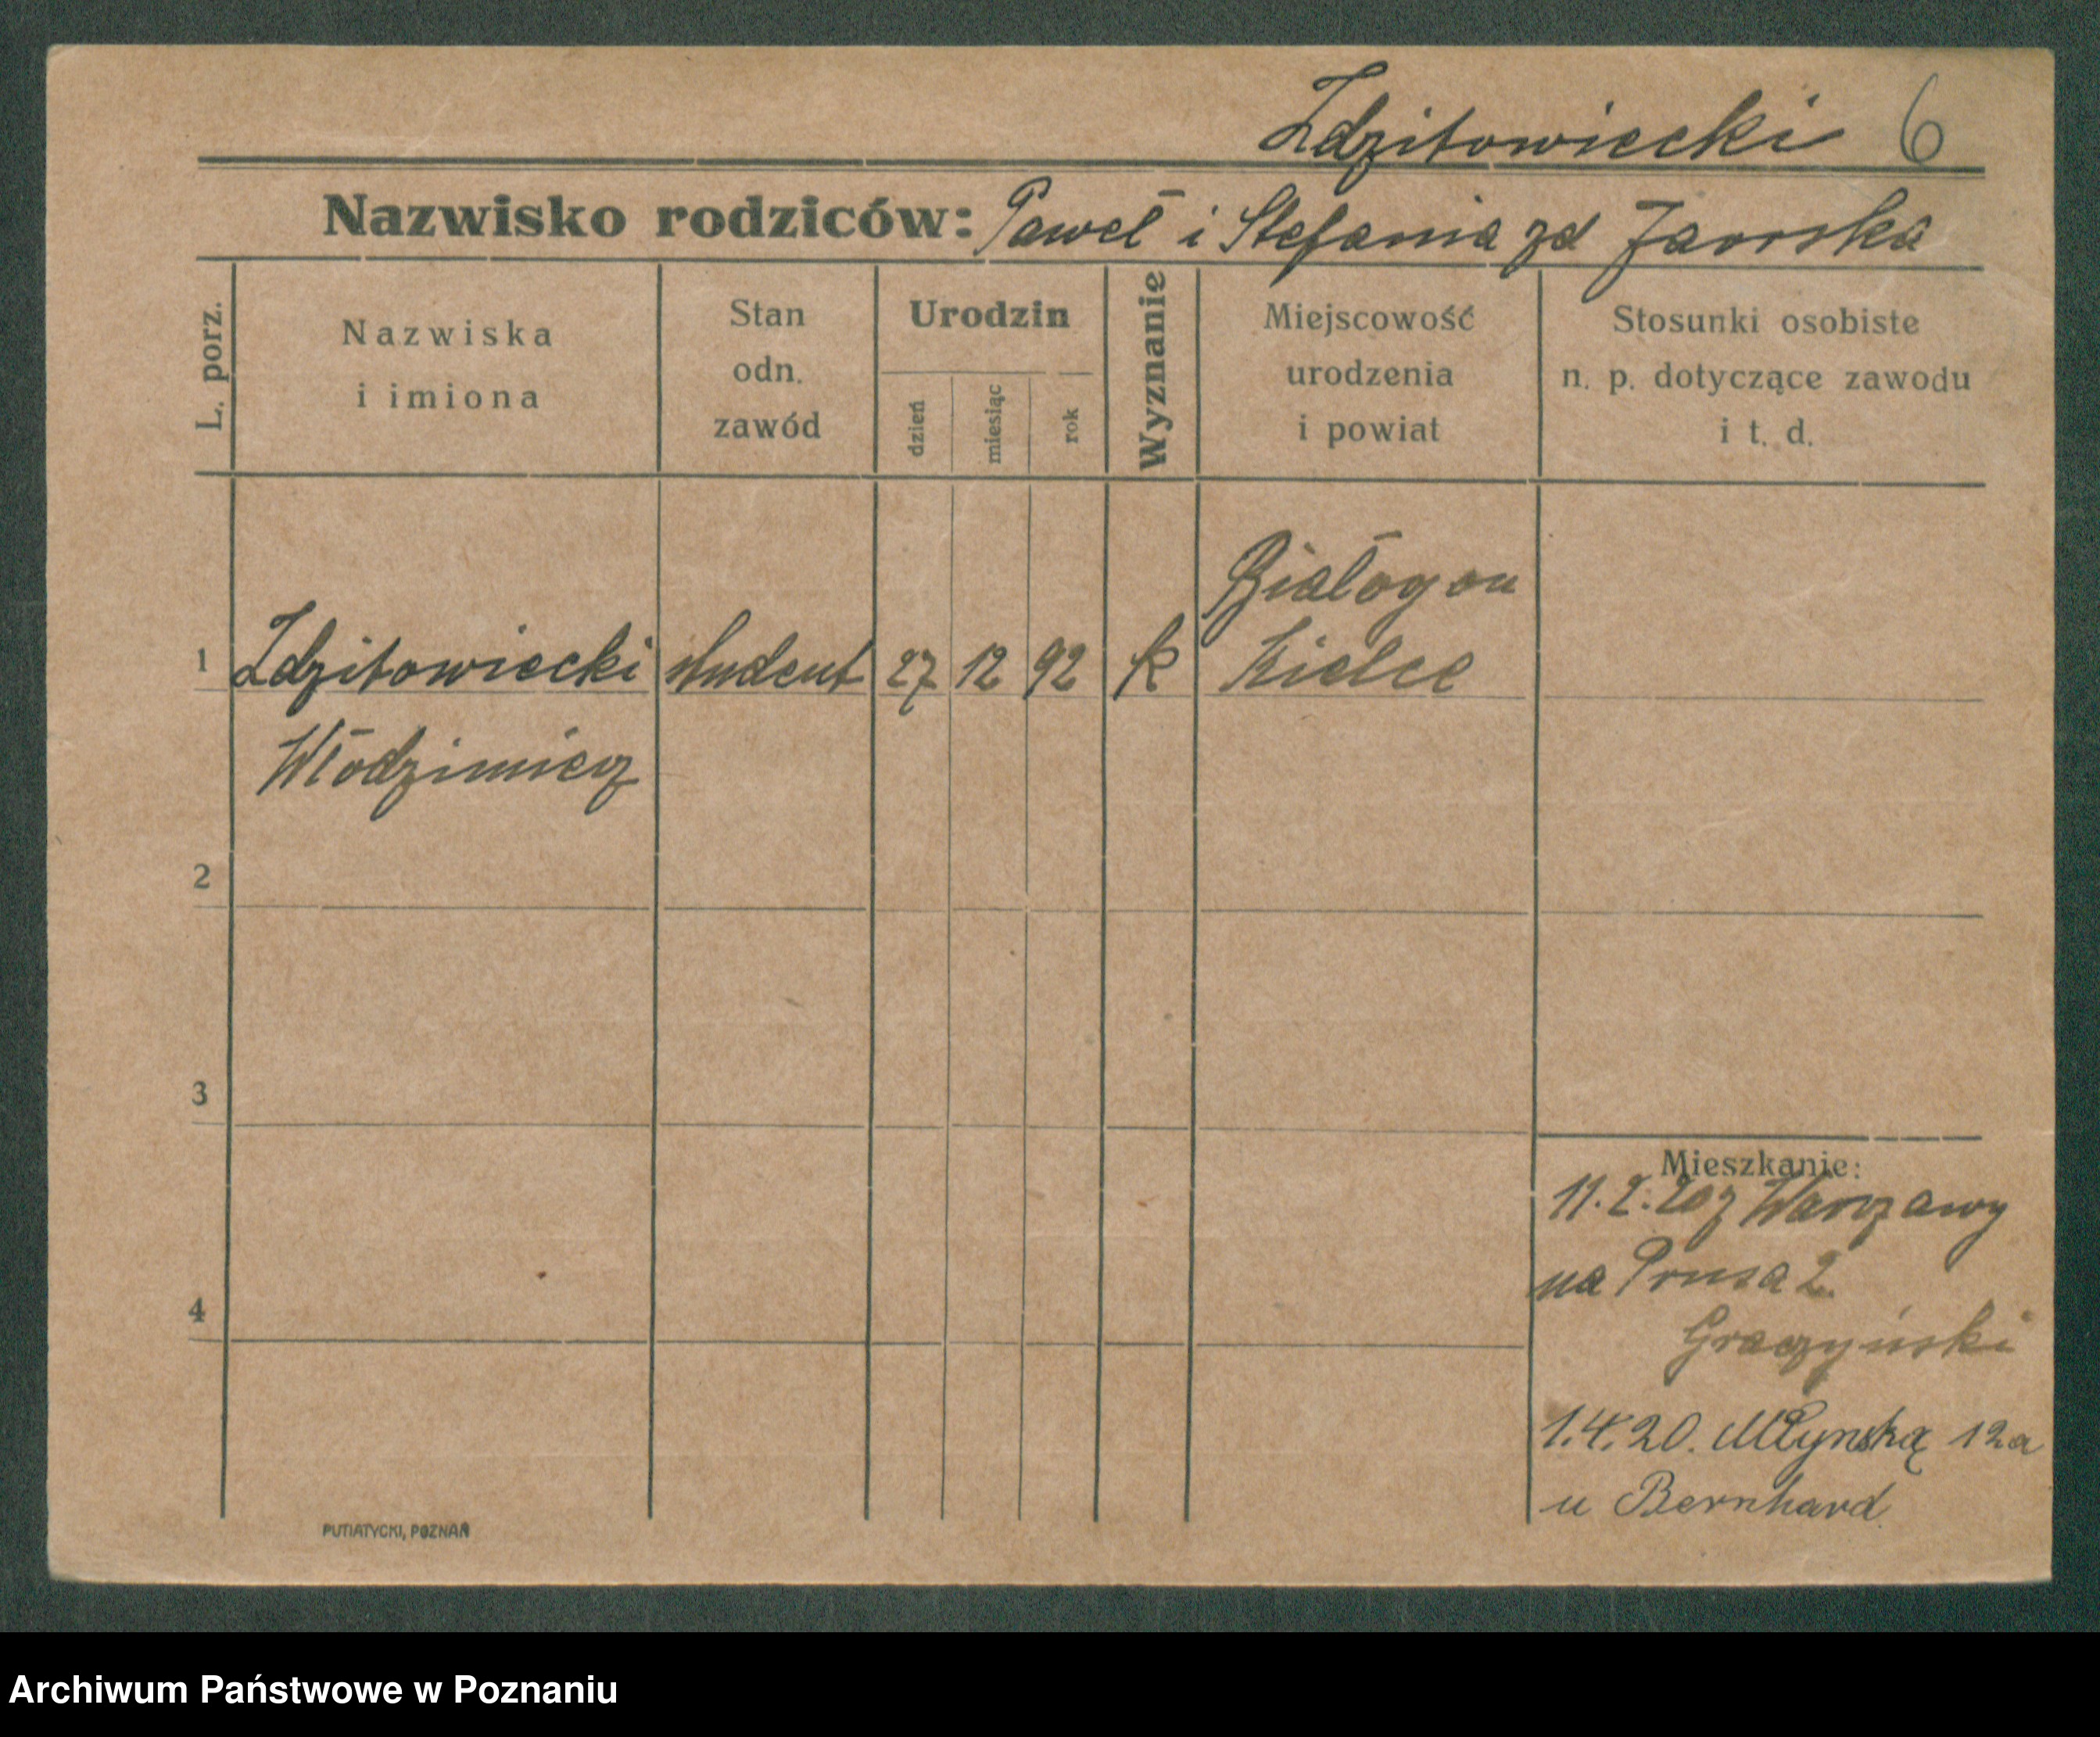 Zdzitowiecki 6
Nazwisko rodziców: Paweł i Stefania zd Jaorska
L. porz.
Nazwiska
i imiona
Stan
odn.
zawód
Urodzin
dzień
miesiąc
rok
Wyznanie
Miejscowość
urodzenia
i powiat
Stosunki osobiste
n. p. dotyczące zawodu
i t. d.
Białogon
1 Zdzitowiecki student 27 12 92 k Kielce
Włodzimierz
2
3
Mieszkanie:
11.2.20 z Warszawy
na Prusa 2.
4
Graczyński
1.4.20. Młynską 12a
u Bernhard.
PUTIATYCKI, POZNAŃ
Archiwum Państwowe w Poznaniu